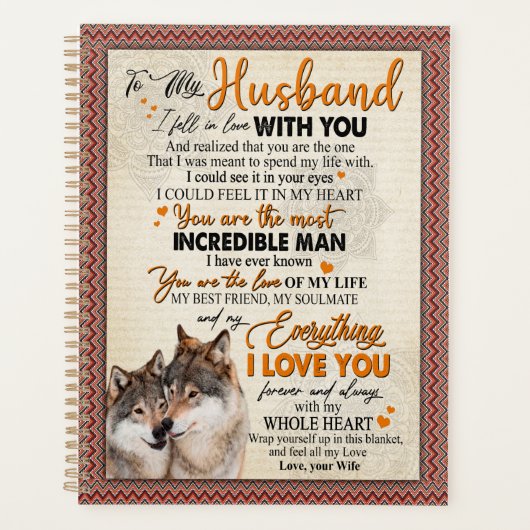 To My Husband
I fell in love WITH YOU
And realized that you are the one
That I was meant to spend my life with.
I could see it in your eyes
I COULD FEEL IT IN MY HEART
You are the most
INCREDIBLE MAN
I have ever known
You are the love OF MY LIFE
MY BEST FRIEND, MY SOULMATE
and my Everything
I LOVE YOU
forever and always
with my
WHOLE HEART
Wrap yourself up in this blanket,
and feel all my Love
Love, your Wife